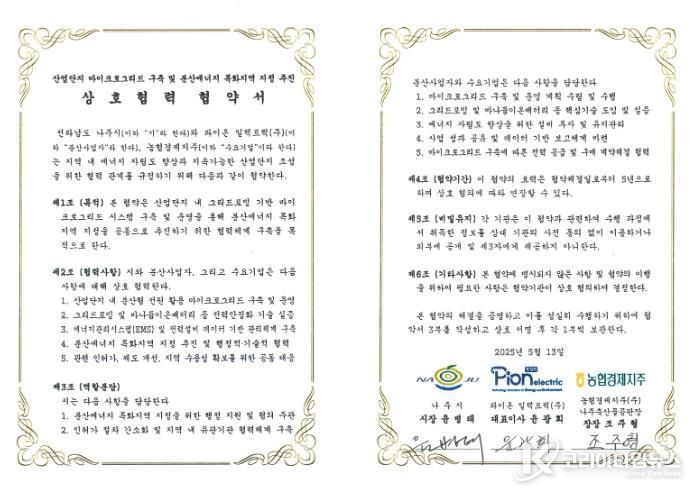 산업단지 마이크로그리드 구축 및 분산에너지 특화지역 지정 추진
상 호 협 력 협 약 서
전라남도 나주시(이하 “시”라 한다)와 파이온 일렉트릭(주)(이
하 “분산사업자”라 한다), 농협경제지주(이하 “수요기업”이라 한다)
는 지역 내 에너지 자립도 향상과 지속가능한 산업단지 조성
을 위한 협력 관계를 규정하기 위해 다음과 같이 협약한다.
제1조 (목적) 본 협약은 산업단지 내 그리드포밍 기반 마이
크로그리드 시스템 구축 및 운영을 통해 분산에너지 특화
지역 지정을 공동으로 추진하기 위한 협력체계 구축을 목
적으로 한다.
제2조 (협력사항) 시와 분산사업자, 그리고 수요기업은 다음
사항에 대해 상호 협력한다.
1. 산업단지 내 분산형 전원 활용 마이크로그리드 구축 및 운영
2. 그리드포밍 및 바나듐이온배터리 등 전력안정화 기술 실증
3. 에너지관리시스템(EMS) 및 전력설비 데이터 기반 관리체계 구축
4. 분산에너지 특화지역 지정 추진 및 행정적·기술적 협력
5. 관련 인허가, 제도 개선, 지역 수용성 확보를 위한 공동 대응
제3조 (역할분담)
시는 다음 사항을 담당한다
1. 분산에너지 특화지역 지정을 위한 행정 지원 및 협의 주관
2. 인허가 절차 간소화 및 지역 내 유관기관 협력체계 구축
분산사업자와 수요기업은 다음 사항을 담당한다
1. 마이크로그리드 구축 및 운영 계획 수립 및 수행
2. 그리드포밍 및 바나듐이온배터리 등 핵심기술 도입 및 실증
3. 에너지 자립도 향상을 위한 설비 투자 및 유지관리
4. 사업 성과 공유 및 데이터 기반 보고체계 마련
5. 마이크로그리드 구축에 따른 전력 공급 및 구매 계약체결 협력
제4조 (협약기간) 이 협약의 효력은 협약체결일로부터 5년으로
하며 상호 협의에 따라 연장할 수 있다.
제5조 (비밀유지) 각 기관은 이 협약과 관련하여 수행 과정에
서 취득한 정보를 상대 기관의 사전 동의 없이 이용하거나
외부에 공개 및 제3자에게 제공하지 아니한다.
제6조 (기타사항) 본 협약에 명시되지 않은 사항 및 협약의 이행
을 위하여 필요한 사항은 협약기관이 상호 협의하여 결정한다.
본 협약의 체결을 증명하고 이를 성실히 수행하기 위하여 협
약서 3부를 작성하고 상호 서명 후 각 1부씩 보관한다.
2025년 5월 13일
NAJU Pion electric 농협경제지주
나 주 시 파이온 일렉트릭(주) 농협경제지주(주)
나주축산물공판장
시장 윤 병 태 대표이사 윤 광 희 장장 조 주 형
윤병태 윤광희 조주형
코리아타임뉴스